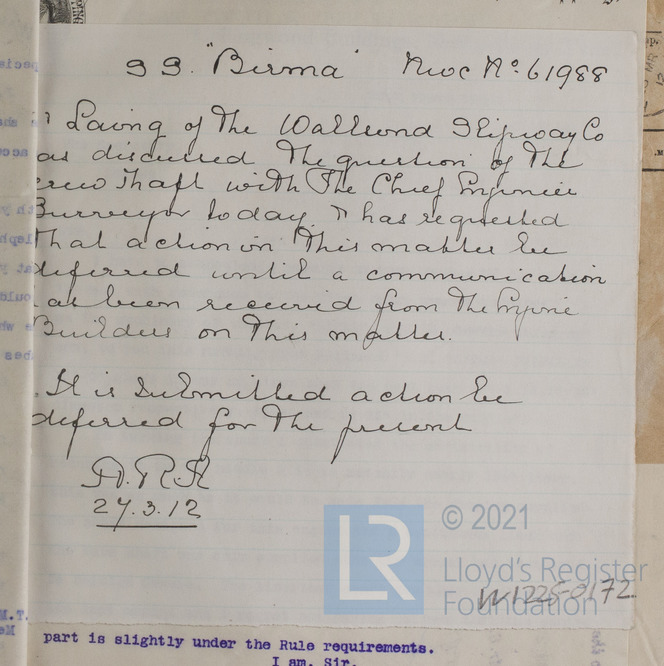 SS. "Birma" Nwc No. 61988
Laing of the Wallsend Slipway Co
as discussed the question of the
crew shaft with The Chief Engineer
Surveyor today, & has requested
that action in this matter be
deferred until a communication
as been received from the Engine
Builders on this matter.
It is submitted action be
deferred for the present
A.R.R
27.3.12
LR
© 2021
Lloyd's Register
Foundation
W1225-0172
part is slightly under the Rule requirements.
I am, Sir,